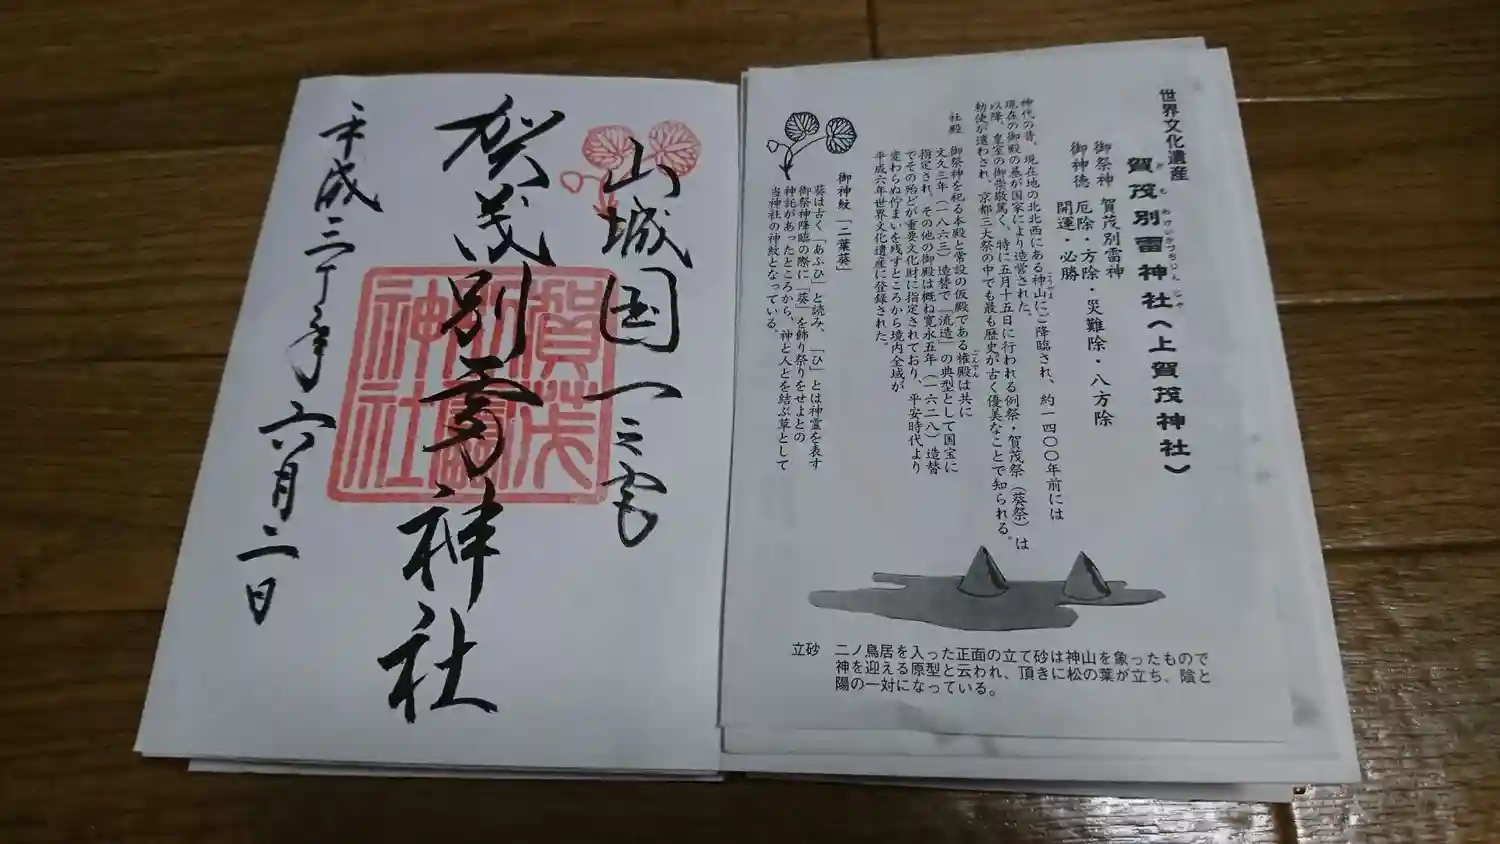 世界文化遺産
賀茂別雷神社(上賀茂神社)
かもわけいかづちじんじゃ
御祭神 賀茂別雷神
御神徳 厄除・方除・災難除・八方除
開運・必勝
神代の昔、現在地の北北西にある神山にご降臨され、約一四〇〇年前には
こうやま
現在の御殿の基が国家により造営された。
以降、皇室の御崇敬篤く、特に五月十五日に行われる例祭・賀茂祭(葵祭)は
勅使が遣わされ、京都三大祭の中でも最も歴史が古く優美なことで知られる。
社殿 御祭神を祀る本殿と常設の仮殿である権殿は共に
ごんでん
文久三年(一八六三)造替で「流造」の典型として国宝に
指定され、その他の御殿は概ね寛永五年(一六二八)造替
でその殆どが重要文化財に指定されており、平安時代より
変わらぬ佇まいを残すところから境内全域が
平成六年世界文化遺産に登録された。
御神紋「二葉葵」
葵は古く「あふひ」と読み、「ひ」とは神霊を表す
御祭神降臨の際に「葵」を飾り祭りをせよとの
神託があったところから、神と人とを結ぶ草として
当神社の神紋となっている。
立砂 二ノ鳥居を入った正面の立て砂は神山を象ったもので
神を迎える原型と云われ、頂きに松の葉が立ち、陰と
陽の一対になっている。
山城国一之宮
賀茂別雷神社
賀茂
別雷
神社
平成三十年六月二日